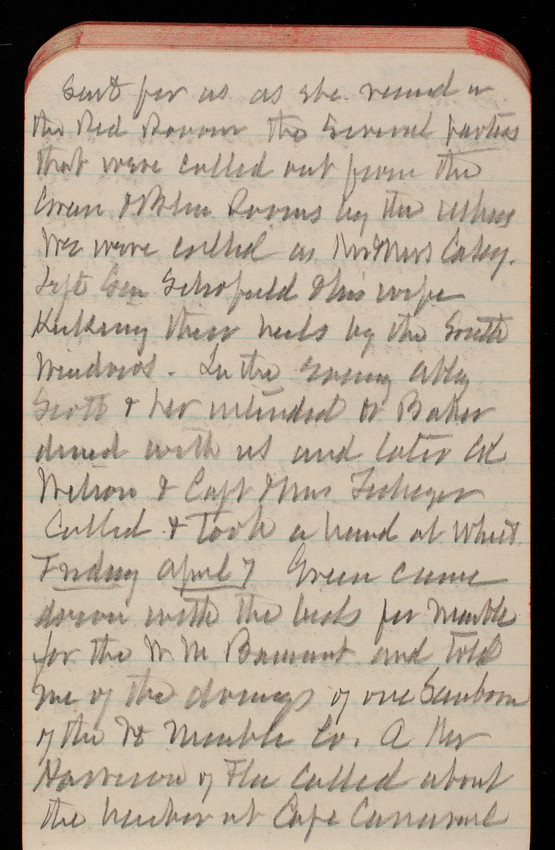 Sent for us as she recied in
the Red Room the several parties
that were called out from the
Green & Blue Rooms by the ushers
We were called as Mr & Mrs Casey.
Left Gen Schofield & his wife
Kicking their heels by the South
Windows. In the evening Abby
Scott & her intended Dr Baker
dined with us and later Col
Wilson & Capt & Mrs
Called & took a hand at Whist.
Friday April 7 Green came
down with the bids for Marble
for the W M and told
me of the doings of one Sanborn
of the Vt Marble Co. A Mr
Harrison of Fla called about
the harbor at Cape Canaveral